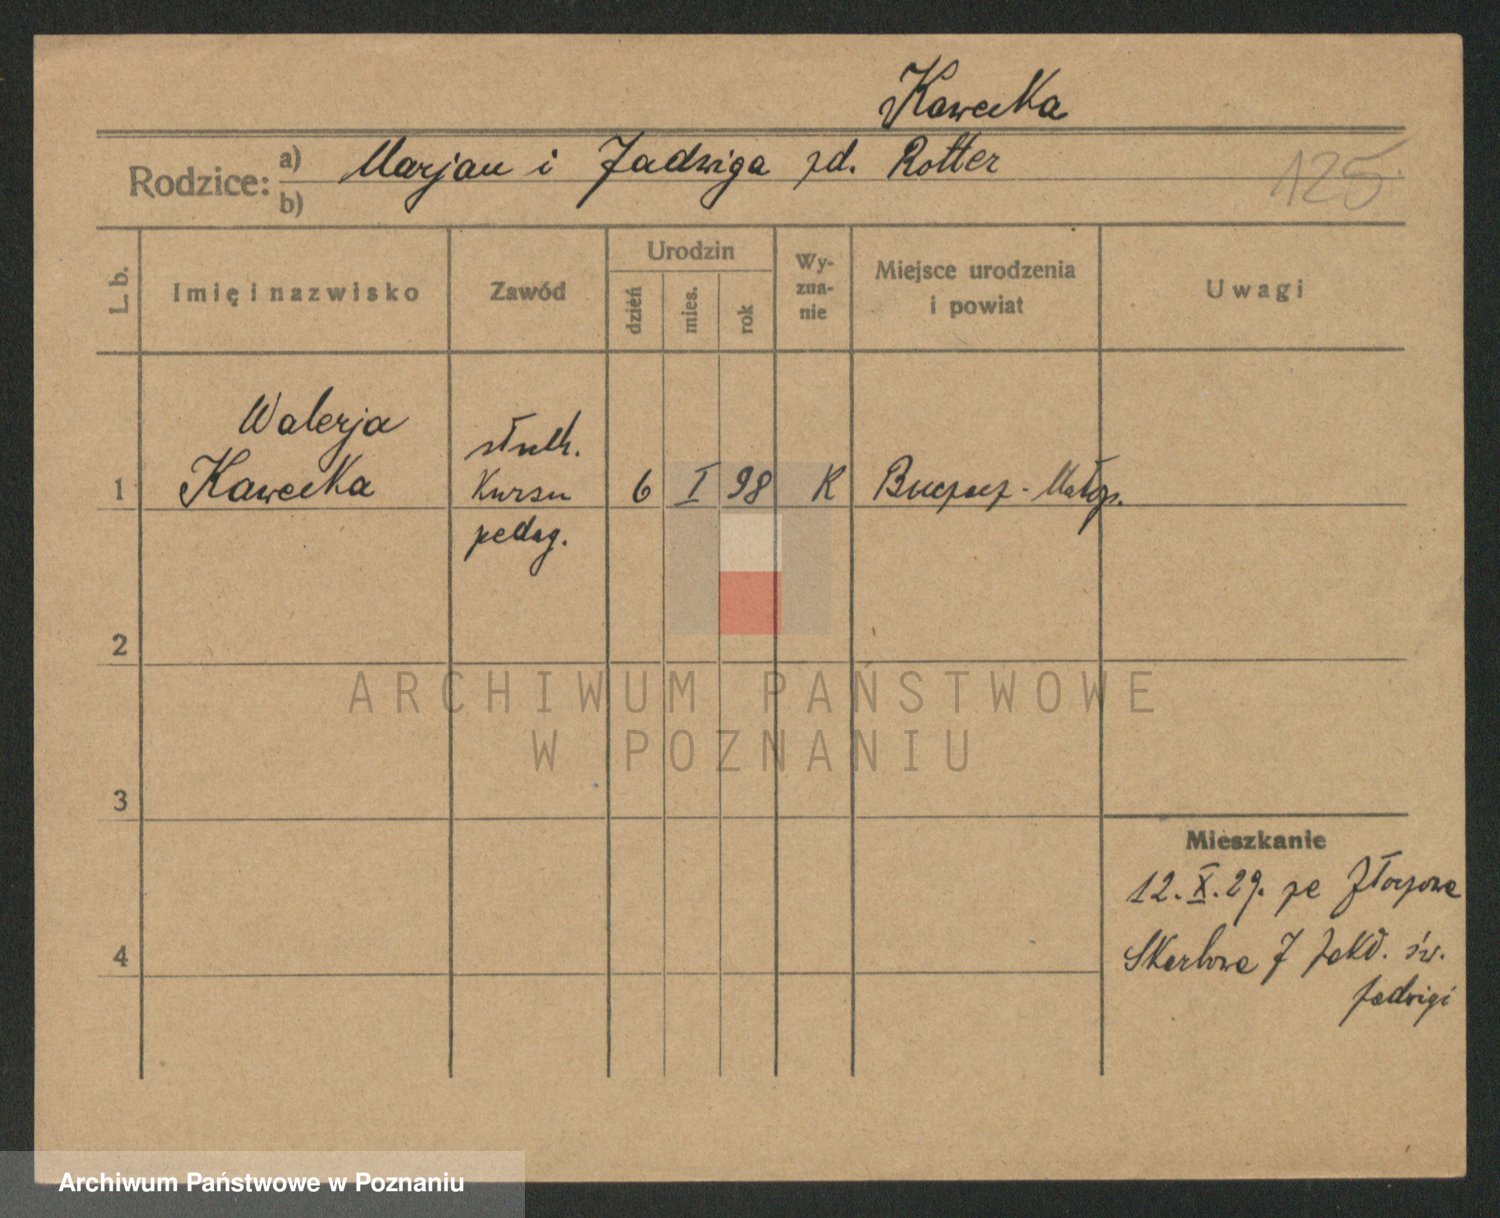 Kawecka
Rodzice: a) Marjan i Jadwiga zd. Rotter
b)
125
L. b.
Imię i nazwisko
Zawód
Urodzin
dzień
mies.
rok
Wy-
zna-
nie
Miejsce urodzenia
i powiat
Uwagi
Walerja
Kawecka
słuch.
Kursu
pedag.
1
6
I
98
K
Buczacz - Małop.
2
3
4
ARCHIWUM PAŃSTWOWE
W POZNANIU
Mieszkanie
12.X.29. ze Złoczowa
Skarbowa 7 Zakł. św.
Jadwigi
Archiwum Państwowe w Poznaniu